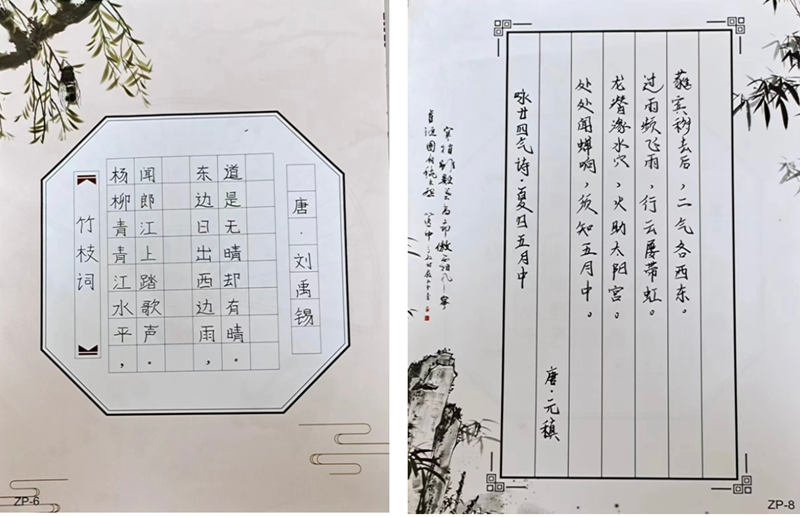 竹枝词
杨柳青青江水平，
闻郎江上踏歌声。
东边日出西边雨，
道是无晴却有晴。
唐·刘禹锡
ZP-6
咏廿四气诗·夏至五月中
唐·元稹
处处闻蝉响，须知五月中。
龙潜渌水穴，火助太阳宫。
过雨频飞雨，行云屡带虹。
蕤宾移去后，二气各西东。
ZP-8